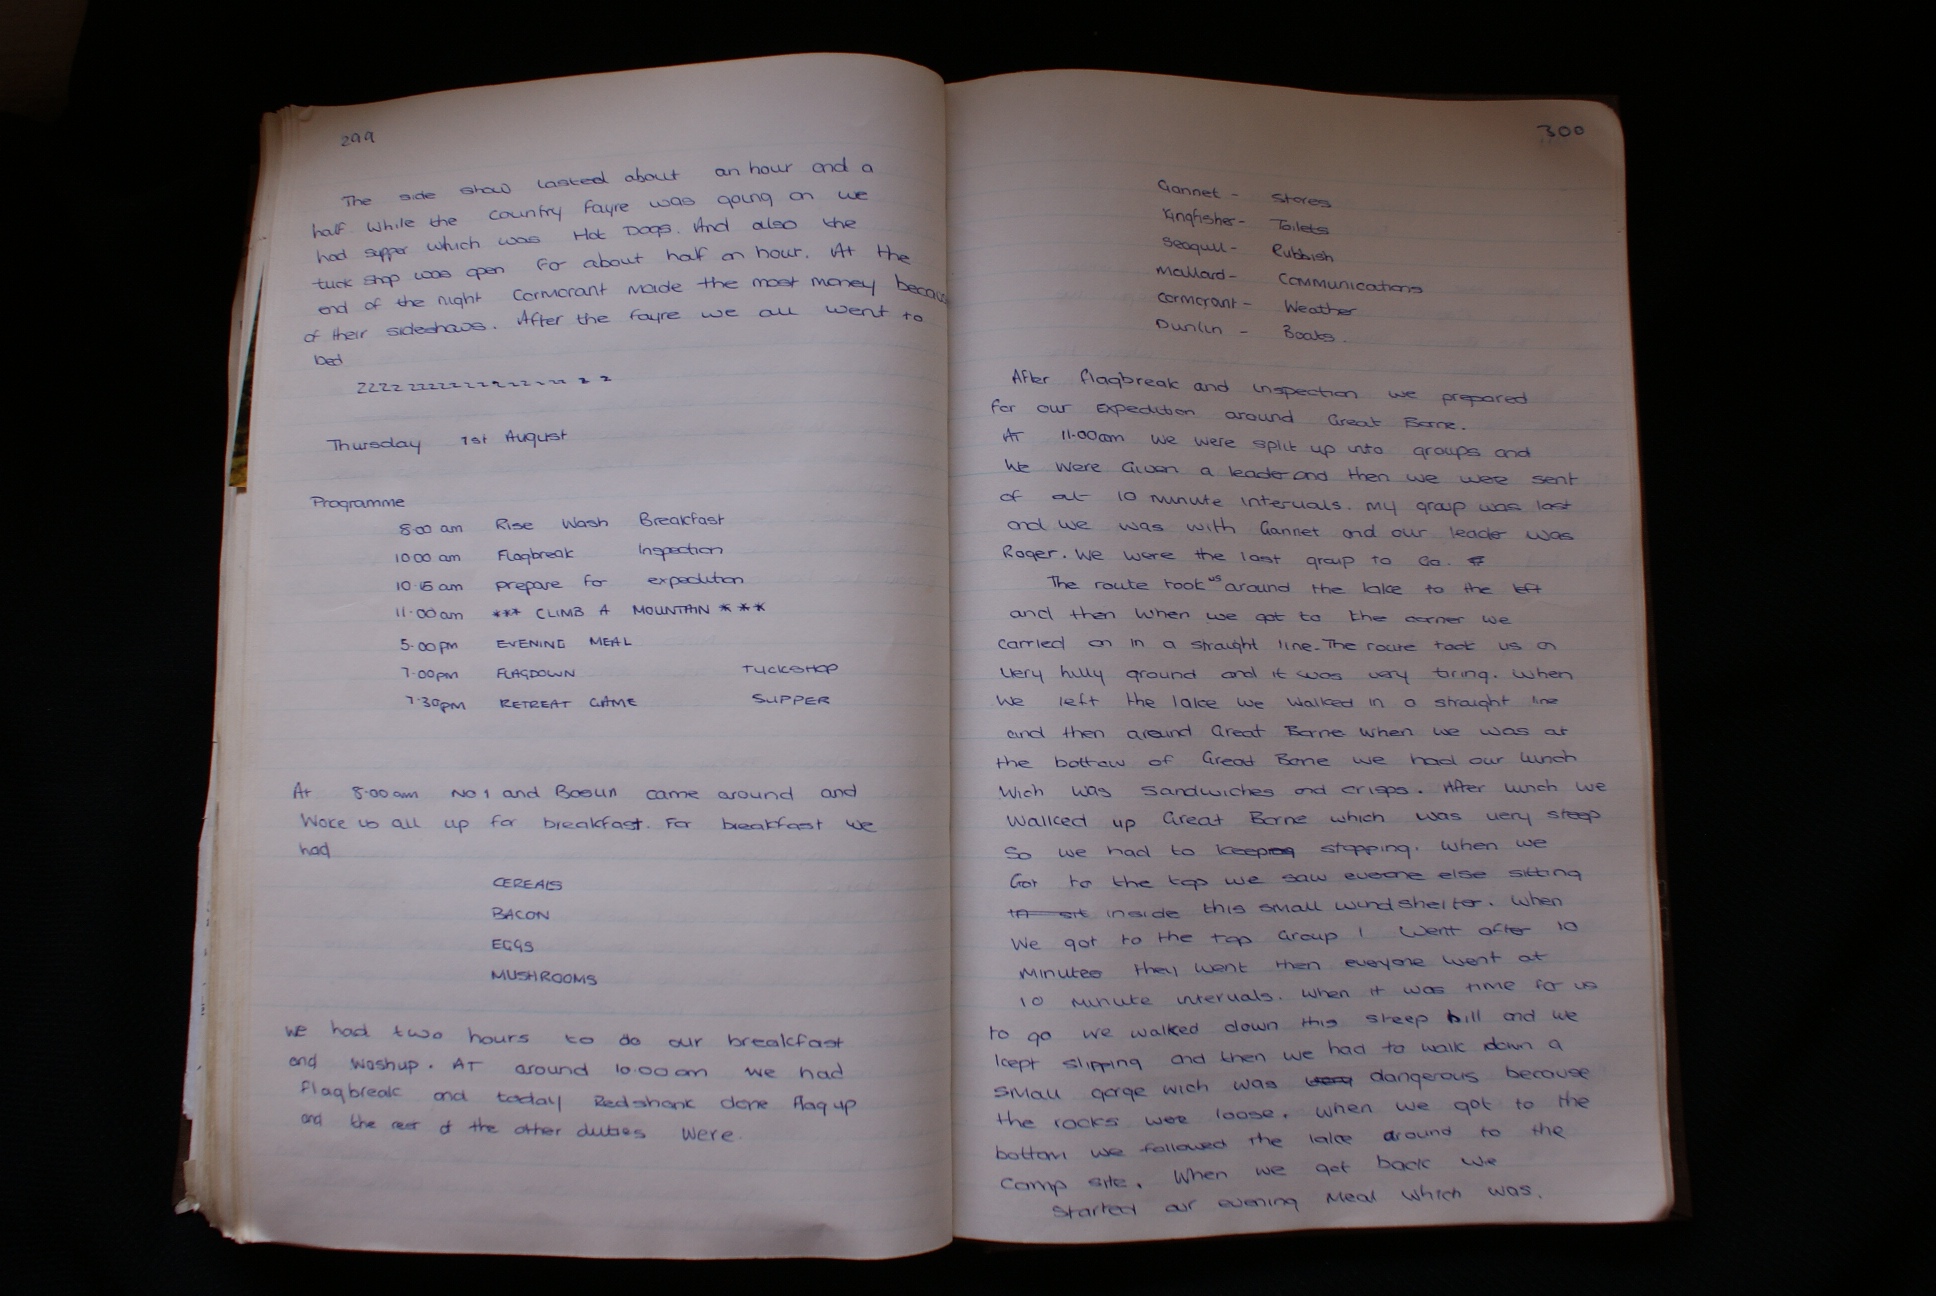 299
The side show lasted about an hour and a
half. While the country fayre was going on we
had supper which was Hot Dogs. And also the
tuck shop was open for about half an hour. At the
end of the night Cormorant made the most money because
of their sideshows. After the fayre we all went to
bed
ZZZZ zzzzzzzzzzzzzz z z
Thursday 1st August
Programme
8.00 am Rise Wash Breakfast
10 00 am Flagbreak Inspection
10.15 am prepare for expedition
11.00 am *** CLIMB A MOUNTAIN ***
5.00pm EVENING MEAL
7.00pm FLAGDOWN TUCKSHOP
7.30pm RETREAT GAME SUPPER
At 8.00am No 1 and Bosun came around and
Woke us all up for breakfast. For breakfast we
had
CEREALS
BACON
EGGS
MUSHROOMS
We had two hours to do our breakfast
and washup. AT around 10.00am we had
flagbreak and today Redshank done flag up
and the rest of the other duties were.
300
Gannet - Stores
Kingfisher - Toilets
Seagull - Rubbish
Mallard - Communications
Cormorant - Weather
Dunlin - Boats.
After flagbreak and inspection we prepared
for our expedition around Great Borne.
At 11.00am we were split up into groups and
we were given a leader and then we were sent
of at 10 minute intervals. My group was last
and we was with Gannet and our leader was
Roger. We were the last group to Go.
The route took us around the lake to the left
and then when we got to the corner we
carried on in a straight line. The route took us on
very hilly ground and it was very tiring. When
we left the lake we walked in a straight line
and then around Great Borne when we was at
the bottom of Great Borne we had our lunch
wich was sandwiches and crisps. After lunch we
walked up Great Borne which was very steep
So we had to keeping stopping. When we
Got to the top we saw eveone else sitting
to sit inside this small windshelter. When
We got to the top Group 1 Went after 10
minutes they went then eveyone went at
10 minute intervals. When it was time for us
to go we walked down this steep hill and we
kept slipping and then we had to walk down a
small gorge wich was very dangerous because
the rocks were loose. When we got to the
bottom we followed the lake around to the
Camp site. When we get back we
Started our evening Meal which was.